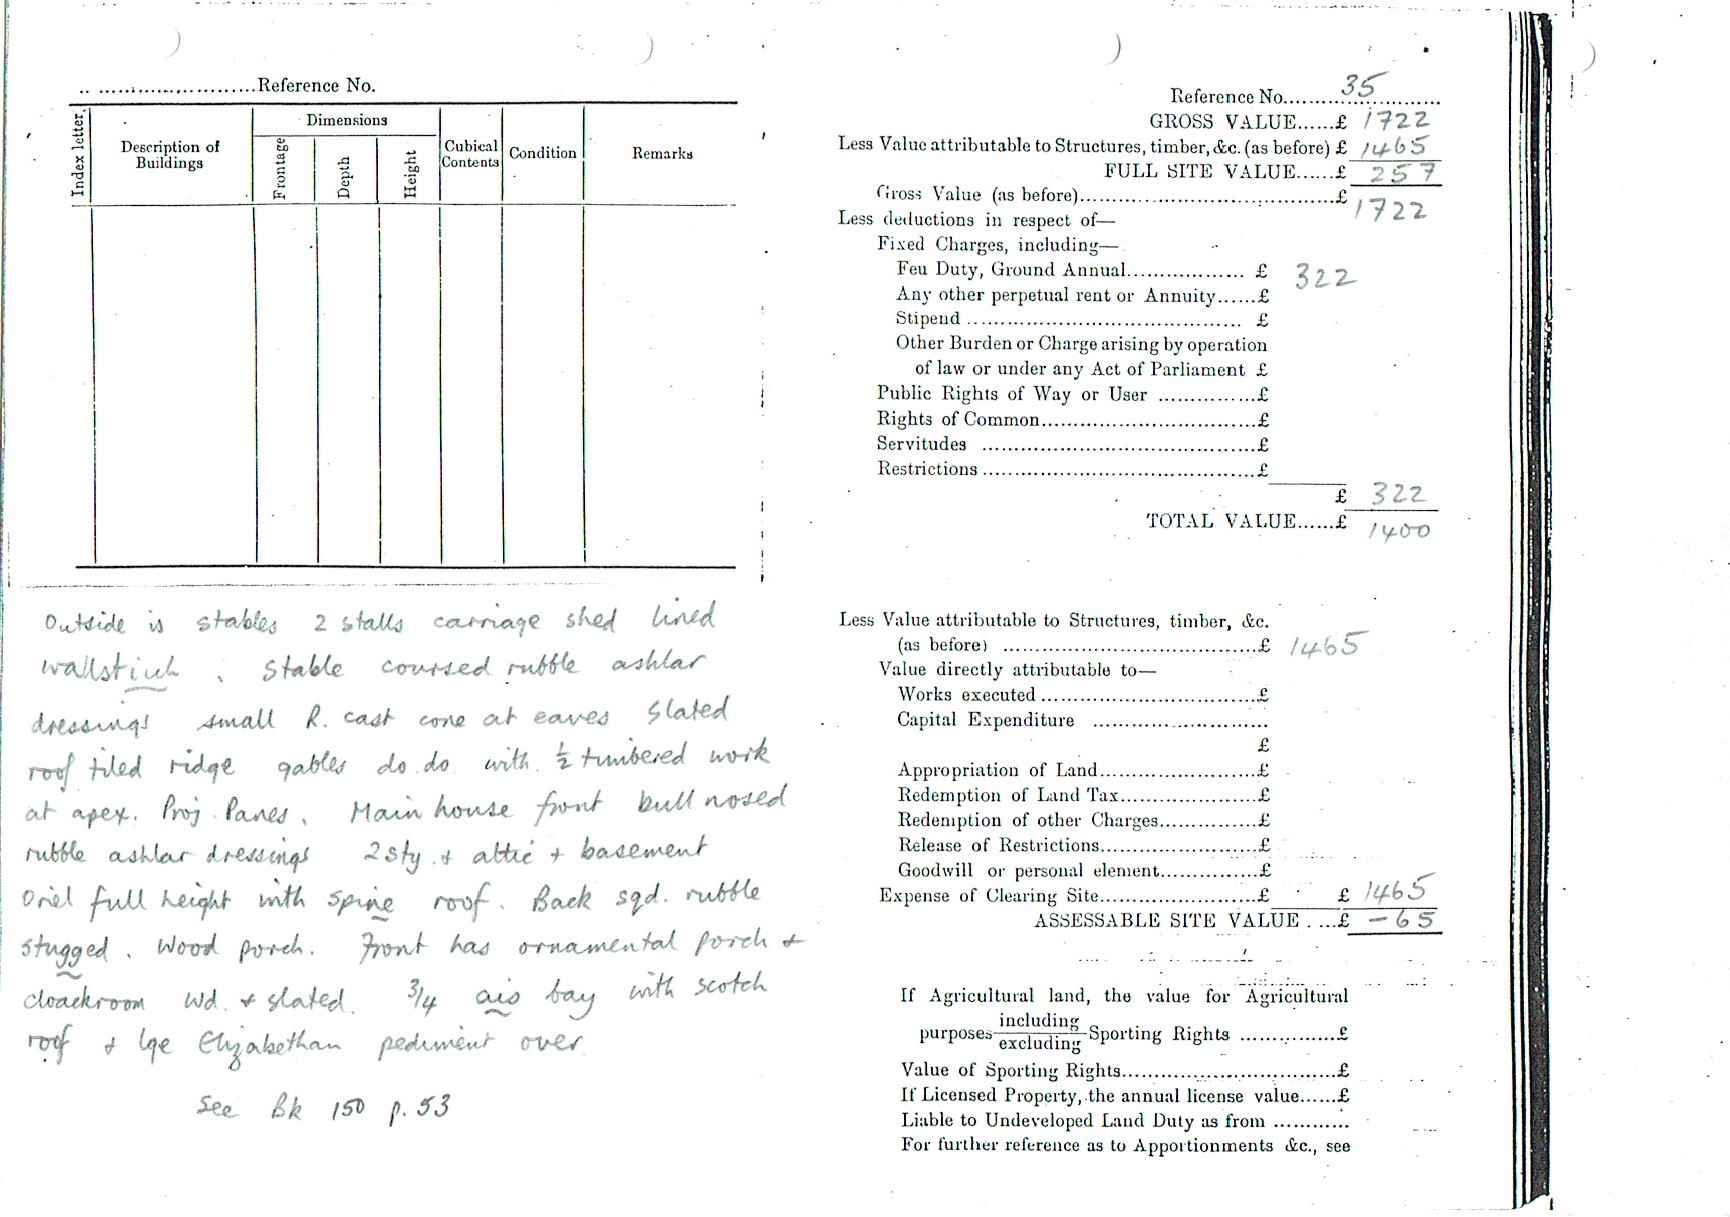 Reference No.
Index letter.
Description of Buildings
Dimensions
Frontage
Depth
Height
Cubical Contents
Condition
Remarks
Outside is stables 2 stalls carriage shed lined
. Stable coursed rubble ashlar
dressings small R. cast cone at eaves slated
roof tiled ridge gables do. do. with ½ timbered work
at apex. Proj. Panes. Main house front bull nosed
rubble ashlar dressings 2 sty. + attic + basement
Oriel full height with spine roof. Back sqd. rubble
stugged. Wood porch. Front has ornamental porch +
cloackroom wd. + slated. 3/4 bay with scotch
roof + lge Elizabethan pediment over
See Bk 150 p. 53
Reference No. 35
GROSS VALUE......£ 1722
Less Value attributable to Structures, timber, &c. (as before) £ 1465
FULL SITE VALUE......£ 257
Gross Value (as before)......£ 1722
Less deductions in respect of—
Fixed Charges, including—
Feu Duty, Ground Annual......£ 322
Any other perpetual rent or Annuity......£
Stipend......£
Other Burden or Charge arising by operation
of law or under any Act of Parliament £
Public Rights of Way or User......£
Rights of Common......£
Servitudes......£
Restrictions......£
£ 322
TOTAL VALUE......£ 1400
Less Value attributable to Structures, timber, &c.
(as before)......£ 1465
Value directly attributable to—
Works executed......£
Capital Expenditure......
£
Appropriation of Land......£
Redemption of Land Tax......£
Redemption of other Charges......£
Release of Restrictions......£
Goodwill or personal element......£
Expense of Clearing Site......£ £ 1465
ASSESSABLE SITE VALUE....£ -65
If Agricultural land, the value for Agricultural
purposes including/excluding Sporting Rights......£
Value of Sporting Rights......£
If Licensed Property, the annual license value......£
Liable to Undeveloped Land Duty as from......
For further reference as to Apportionments &c., see